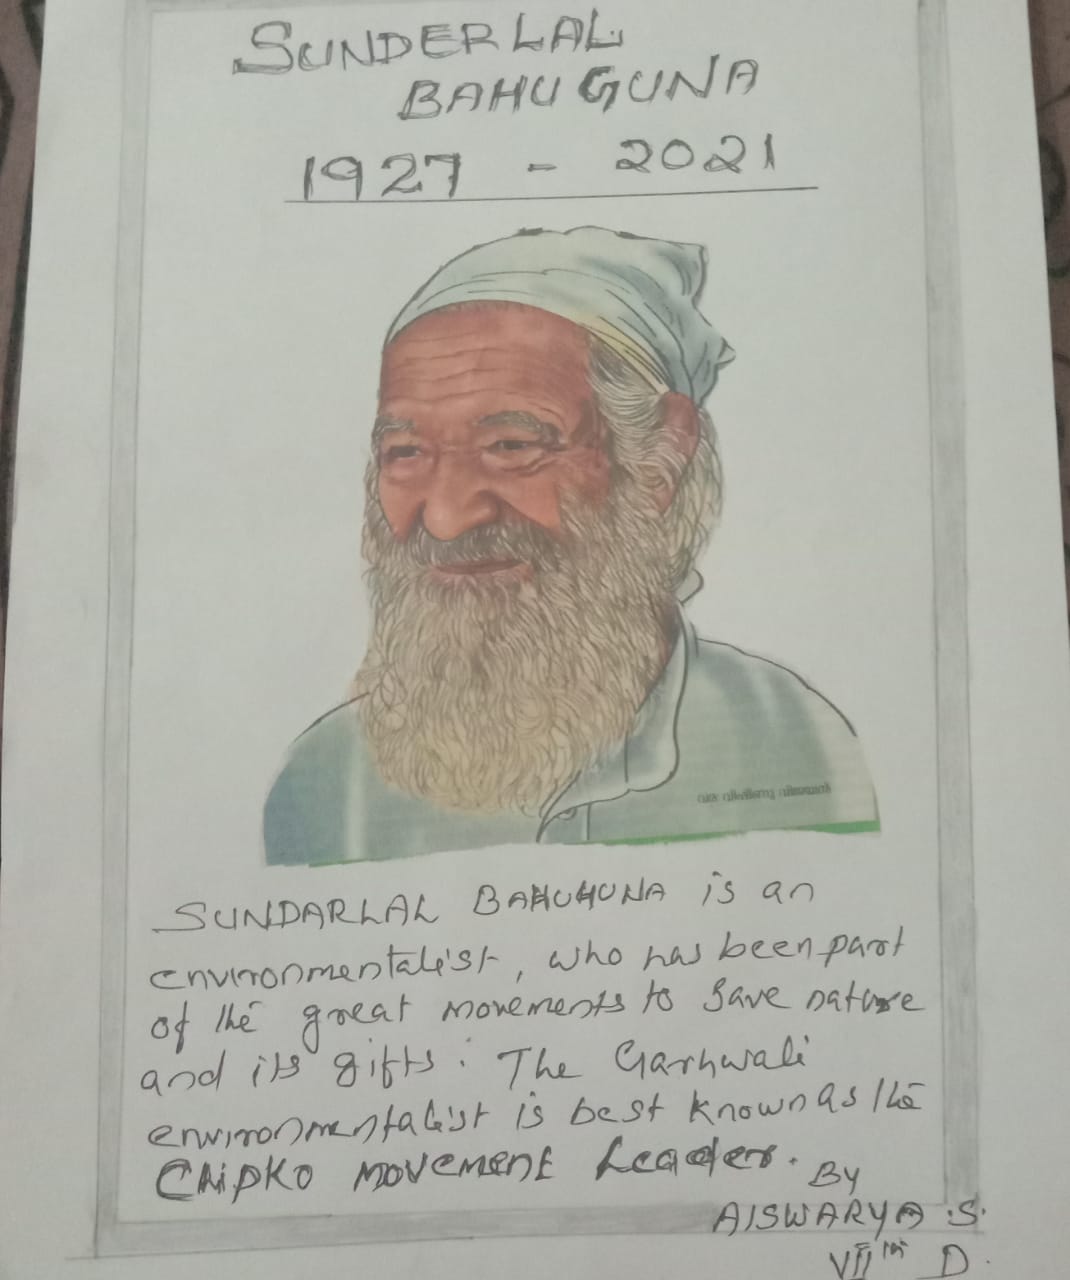 SUNDERLAL
BAHUGUNA
1927 - 2021
വര: വിഷ്ണു വിജയൻ
SUNDARLAL BAHUHUNA is an
environmentalist, who has been part
of the great movements to save nature
and its gifts. The Garhwali
environmentalist is best known as the
CHIPKO MOVEMENT Leader.
By
AISWARYA .S.
VIIth D.